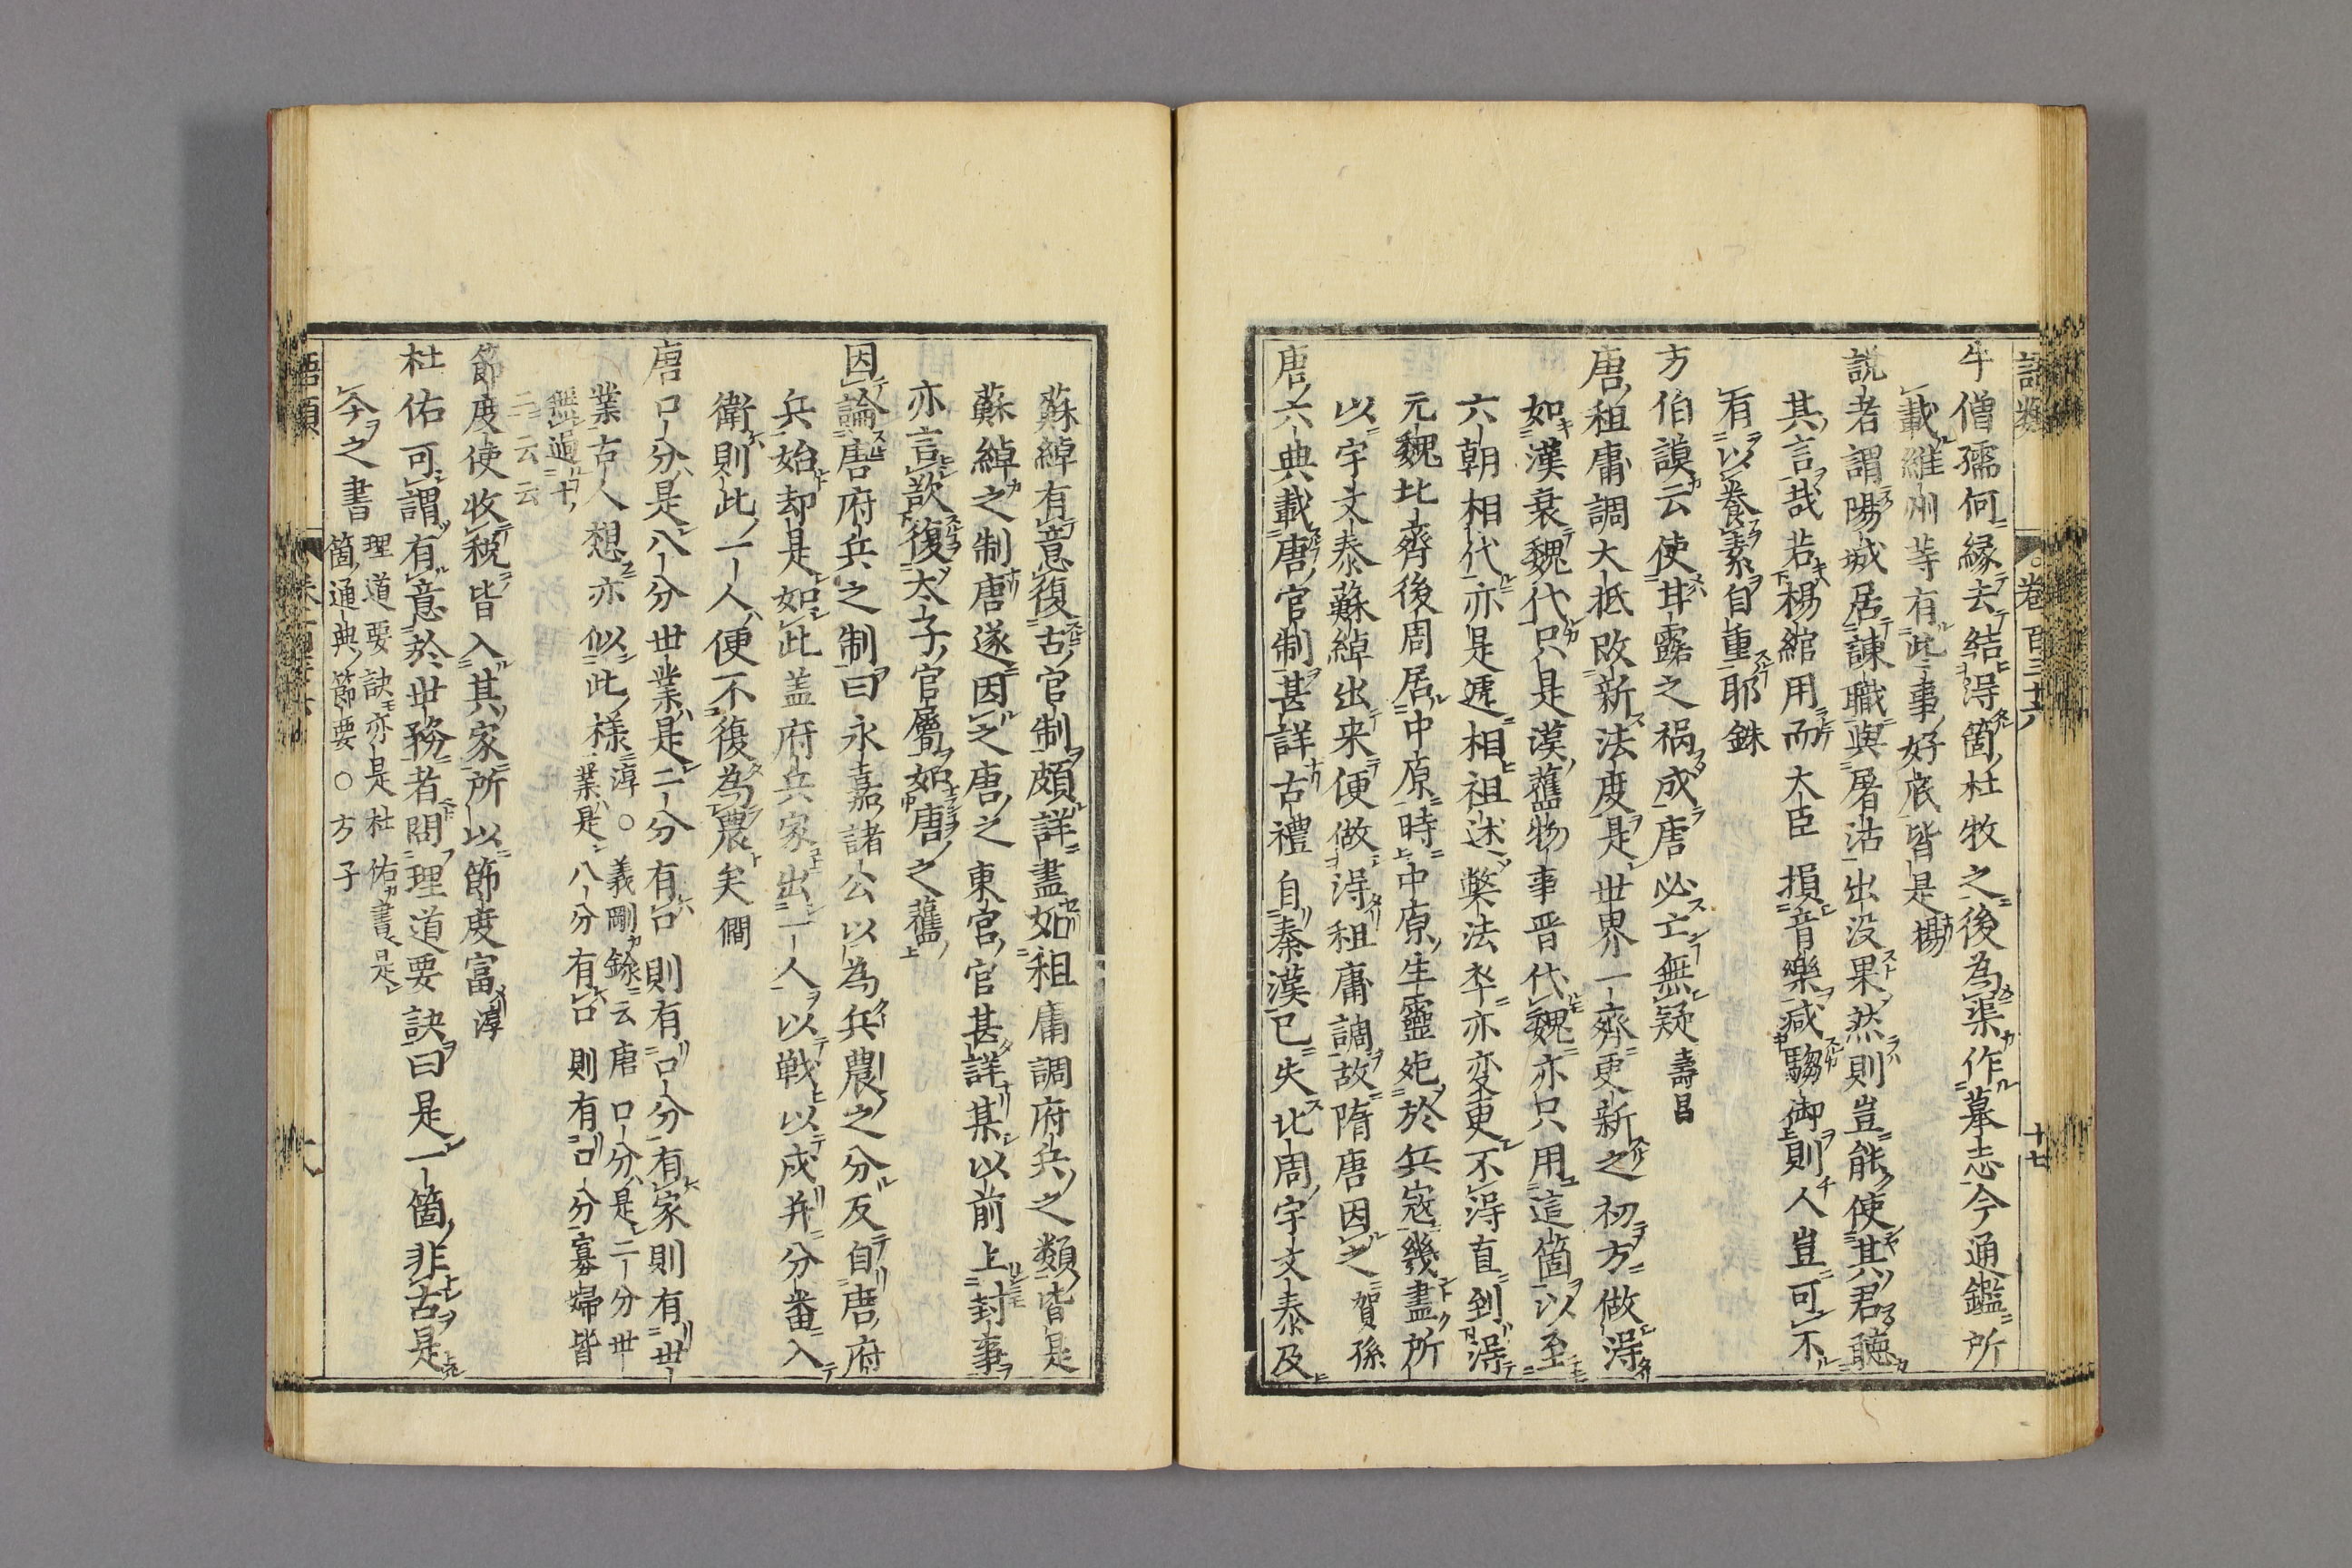 語類 卷百三十六 十七
牛僧孺何緣去結得箇杜牧之後為渠作墓志今通鑑所
載維州等有此事好底皆是 楊
說者謂陽城居諫職與屠沽出没果然則豈能使其君聽
其言哉若楊綰用而大臣損音樂減騶御則人豈可不
有以養素自重耶 銖
方伯謨云使甘露之禍成唐必亡無疑 壽昌
唐租庸調大抵改新法度是世界一齊更新之初方做得
如漢衰魏代只是漢舊物事晋代魏亦只用這箇以至
六朝相代亦是遞相祖述弊法卒亦変更不得直到得
元魏北齊後周居中原時中原生靈死於兵寇幾盡所
以宇文泰蘇綽出来便做得租庸調故隋唐因之 賀孫
唐六典載唐官制甚詳古禮自秦漢已失北周宇文泰及
蘇綽有意復古官制頗詳盡如租庸調府兵之類皆是
蘇綽之制唐遂因之唐之東官官甚詳某以前上封事
亦言欲復太子官屬如唐之舊
因論唐府兵之制曰永嘉諸公以為兵農之分反自唐府
兵始却是如此盖府兵家出一人以戦以戍并分番入
衛則此一人便不復為農矣 僩
唐口分是八分世業是二分有口則有口分有家則有世
業古人想亦似此樣 淳○義剛錄云唐口分是二分世
業是八分有口則有口分寡婦皆
無過十
二云云
節度使收稅皆入其家所以節度富 淳
杜佑可謂有意於世務者問理道要訣曰是一箇非古是
今之書 理道要訣亦是杜佑書是
箇通典節要○方子
語類 卷百三十六 十八